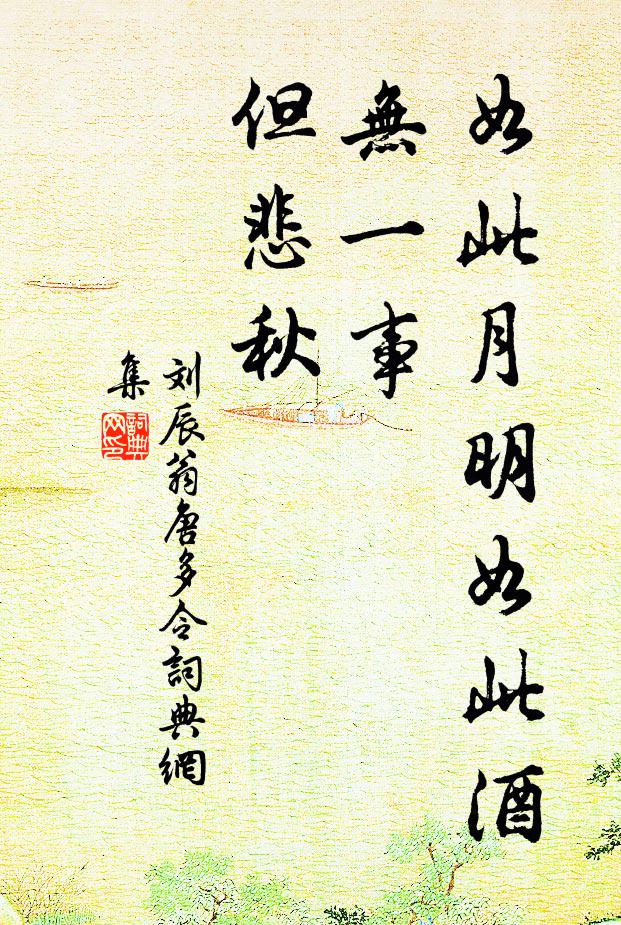 如此月明如此酒
無一事
但悲秋
刘辰翁唐多令詞典網
集
詞典
网印